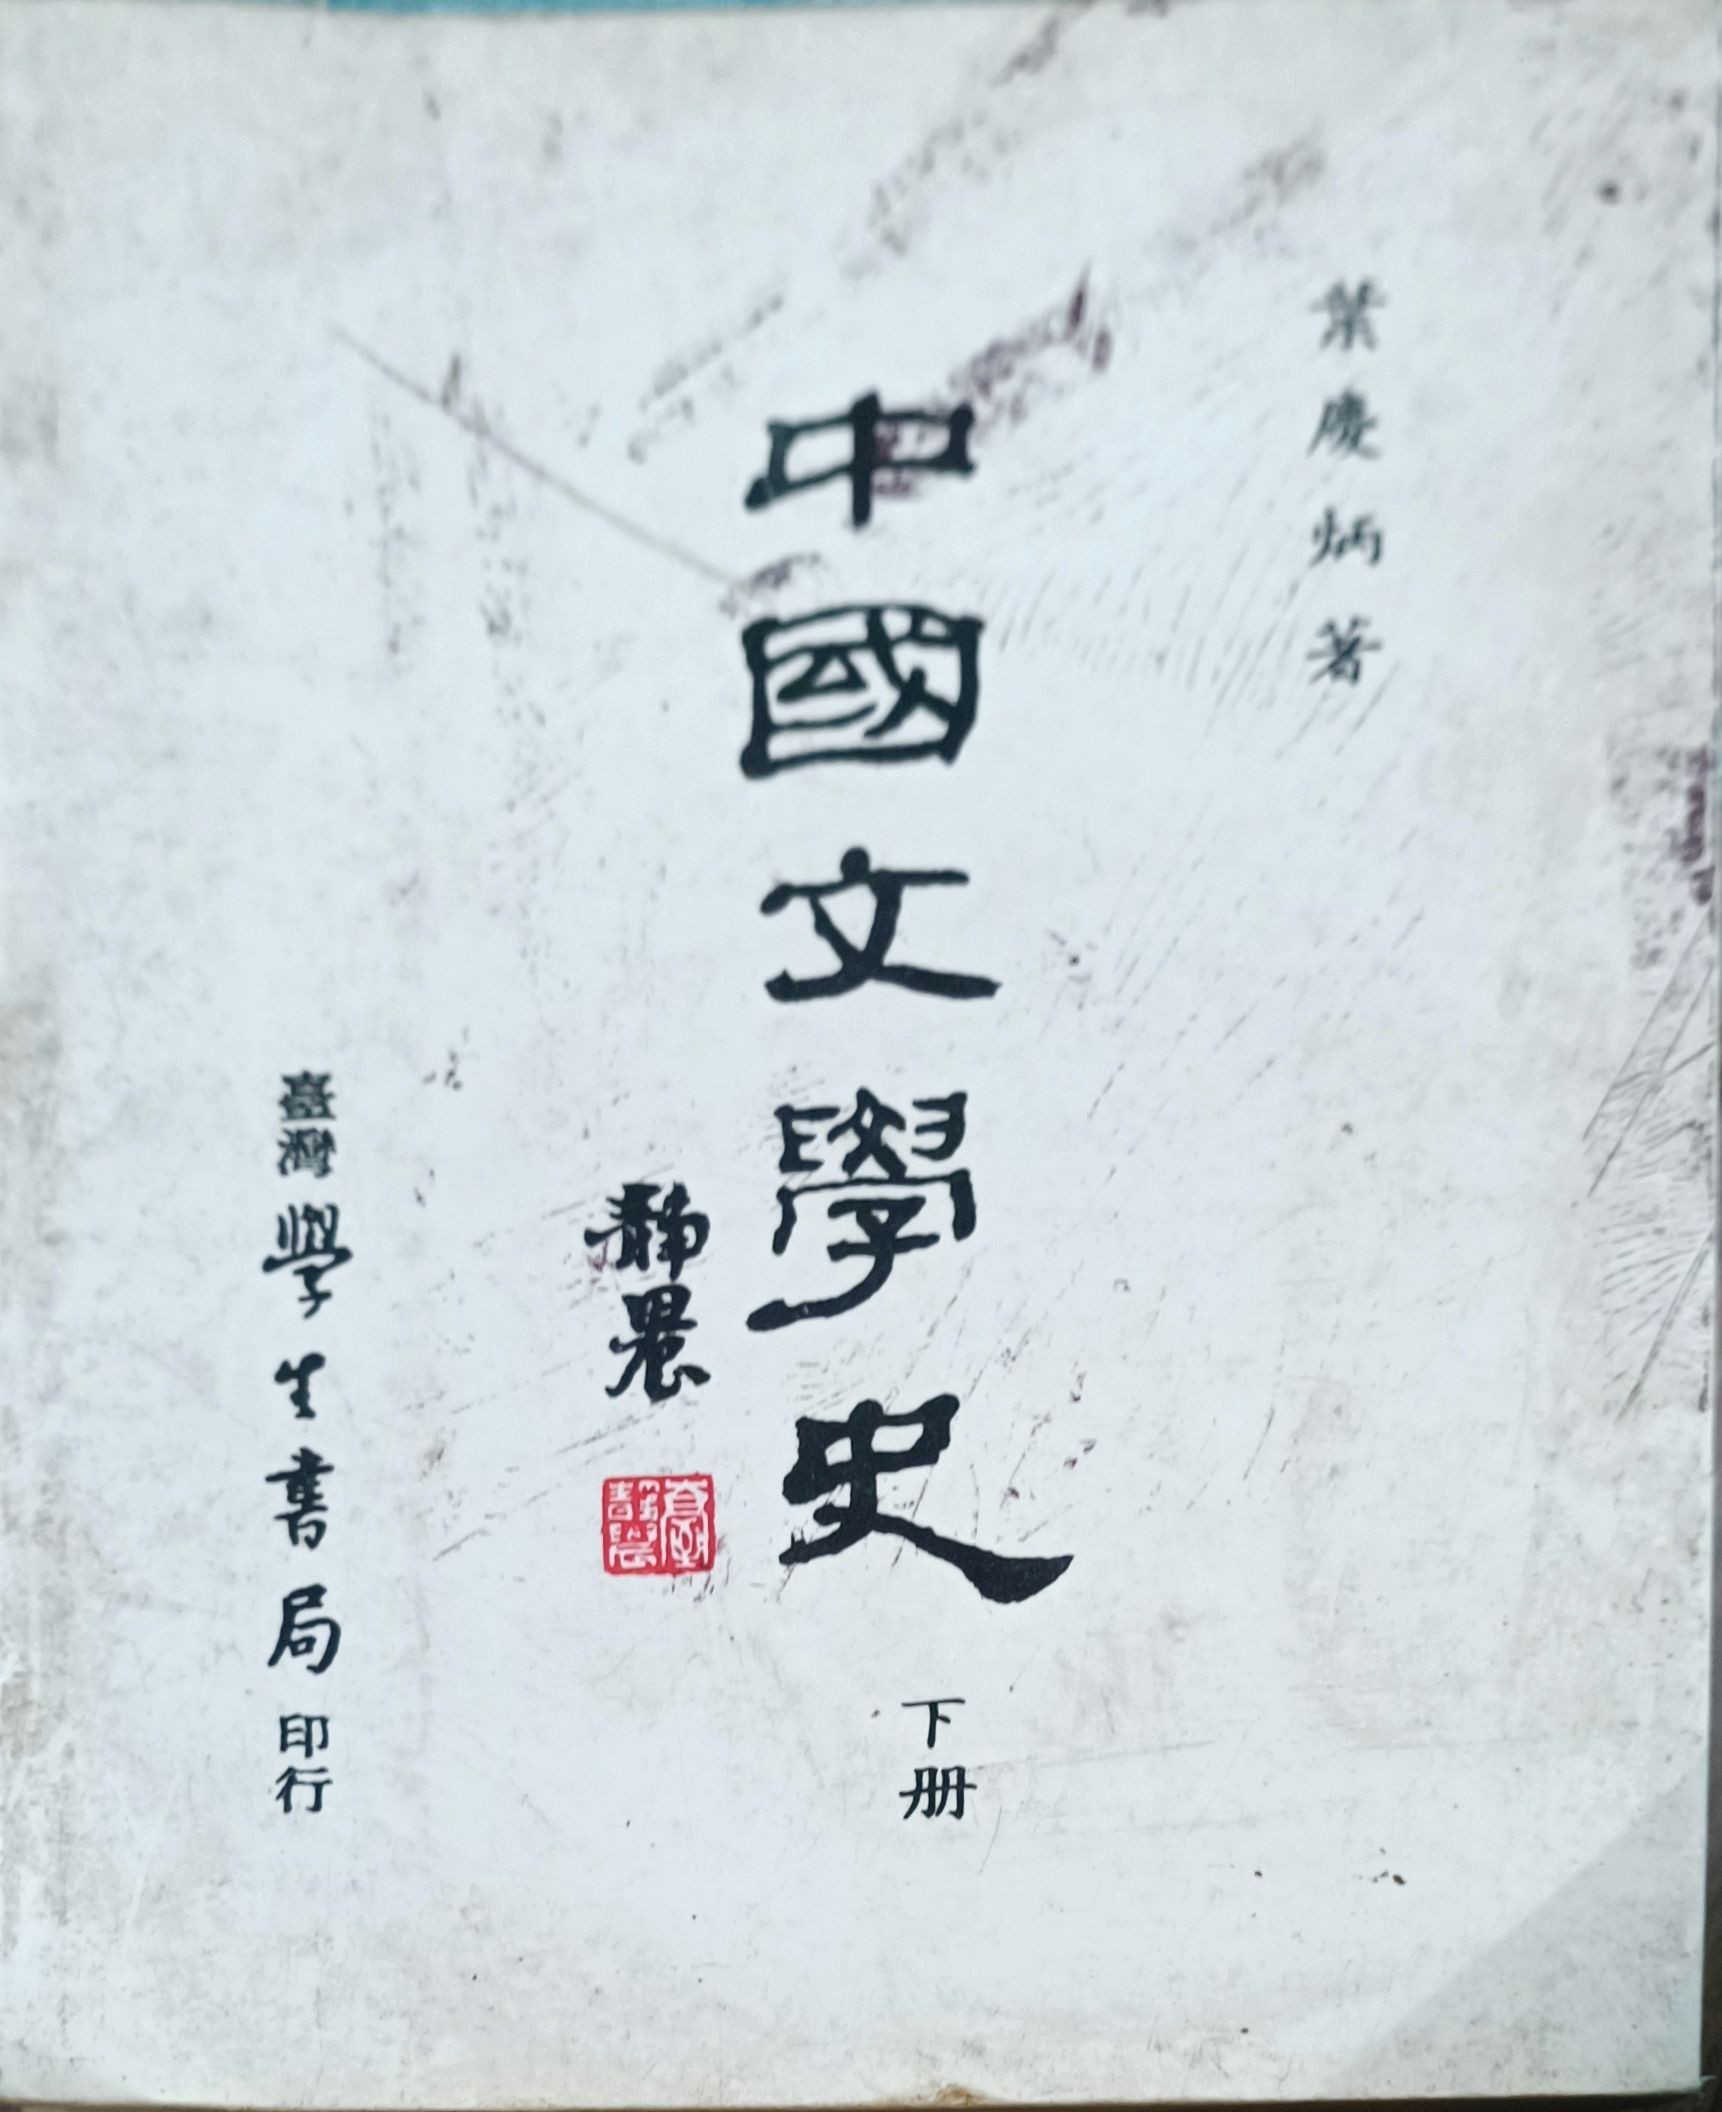 葉慶炳著
中國文學史
下册
靜農
臺靜農
臺灣學生書局印行